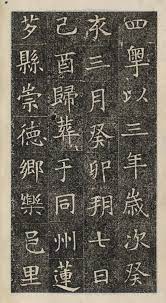 四粵以三年歲次癸
亥三月癸卯朔七日
己酉歸葬于同州蓮
芍縣崇德鄉樂邑里